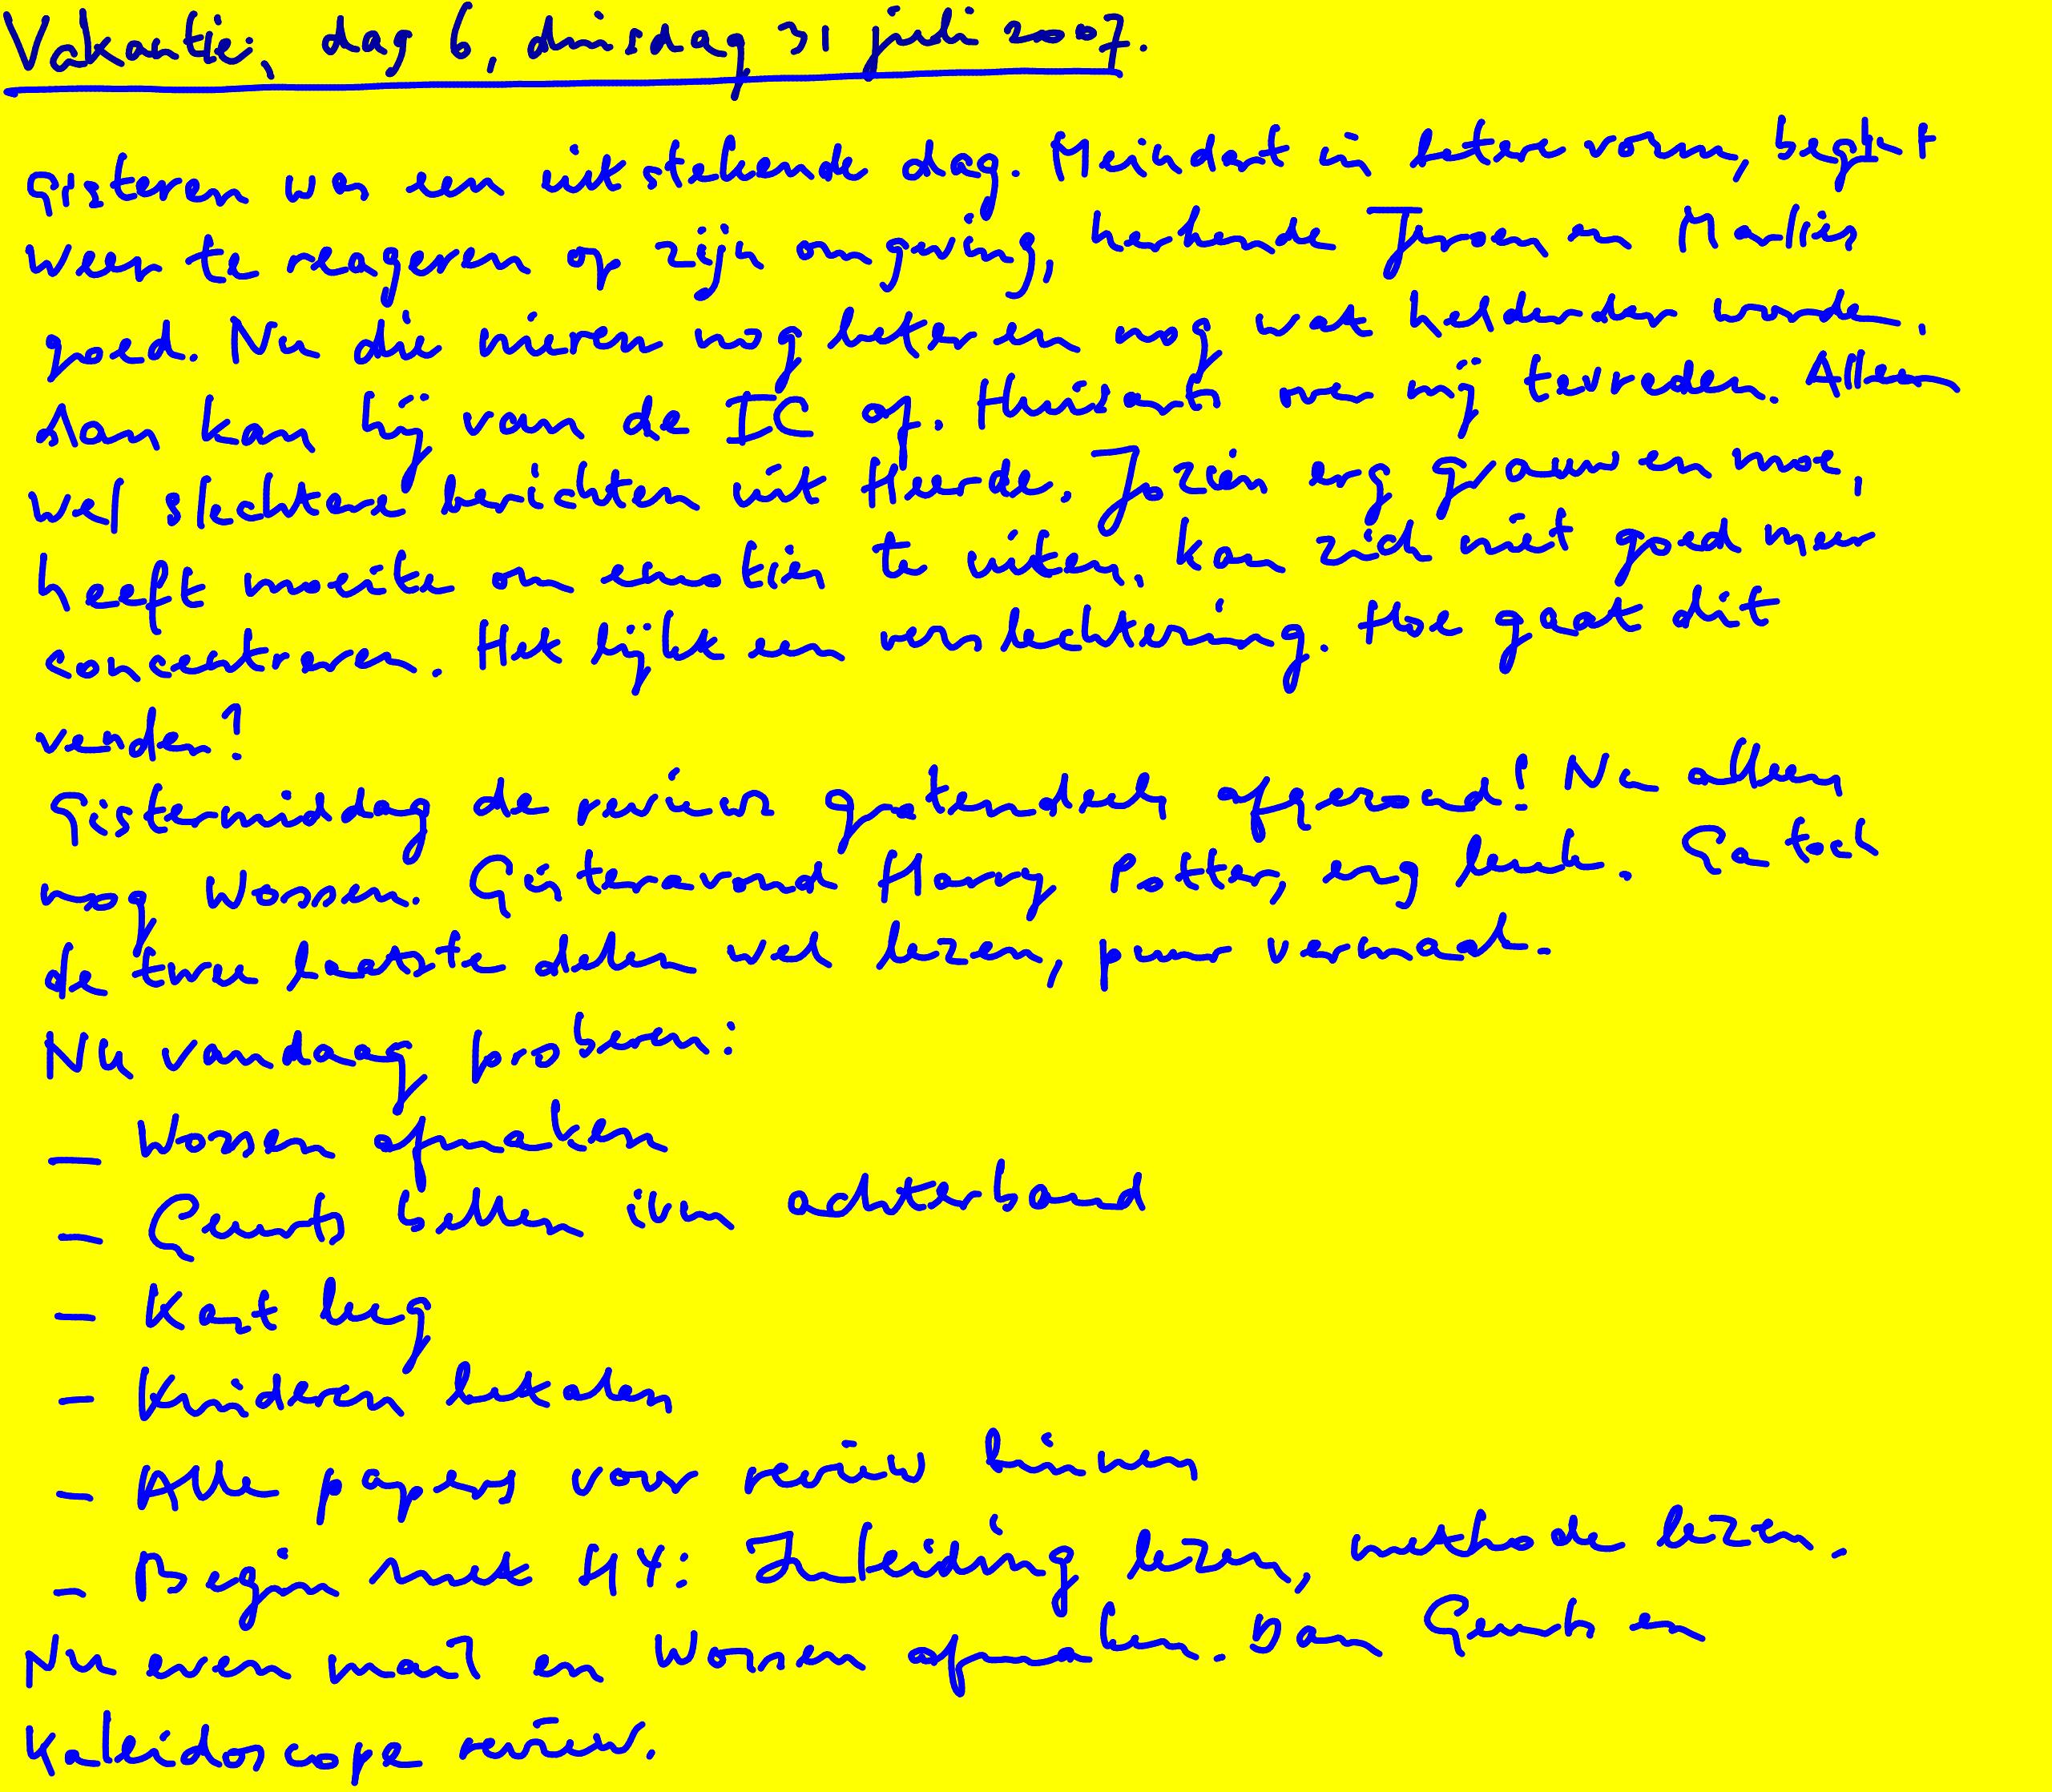 Vakantie, dag 6, dinsdag 31 juli 2007.
Gisteren was een uitstekende dag. Meindert in betere vorm, begint
weer te reageren op zijn omgeving, herkende Jeroen en Marlies
goed. Nu die nieren nog beter en nog wat helderder worden,
dan kan hij van de IC af. Huisarts over mij tevreden. Alleen
wel slechtere berichten uit Heerde. Jozien erg grauw en moe,
heeft moeite om emotien te uiten, kan zich niet goed meer
concentreren. Het lijkt een verslechtering. Hoe gaat dit
verder?
Gistermiddag de reviews grotendeels afgerond! Nu alleen
nog Vossen. Gisteravond Harry Potter, erg leuk. Ga toch
de twee laatste delen wel lezen, puur vermaak.
Nu vandaag proberen:
- Vossen afmaken
- Geurts bellen ivm achterband
- Kast leeg
- Kinderen betalen
- Alle papers voor review binnen
- Begin met H4: Inleiding lezen, methode lezen.
Nu even mail en Vossen afmaken. Dan Geurts en
Kaleidoscope review.